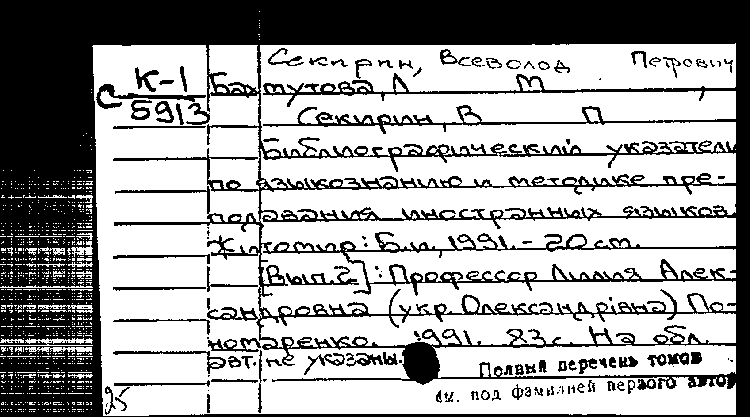 Секирин, Всеволод Петрович
С К-1
5913
Бахмутова, Л М ,
Секирин, В П
Библиографический указатель
по языкознанию и методике пре-
подавания иностранных языков.
Житомир: Б.и, 1991. - 20 см.
[Вып.2]: Профессор Лилия Алек-
сандровна (укр. Олександрівна) По-
номаренко. 1991. 83 с. На обл.
авт. не указаны.
Полный перечень томов
см. под фамилией первого автор
25